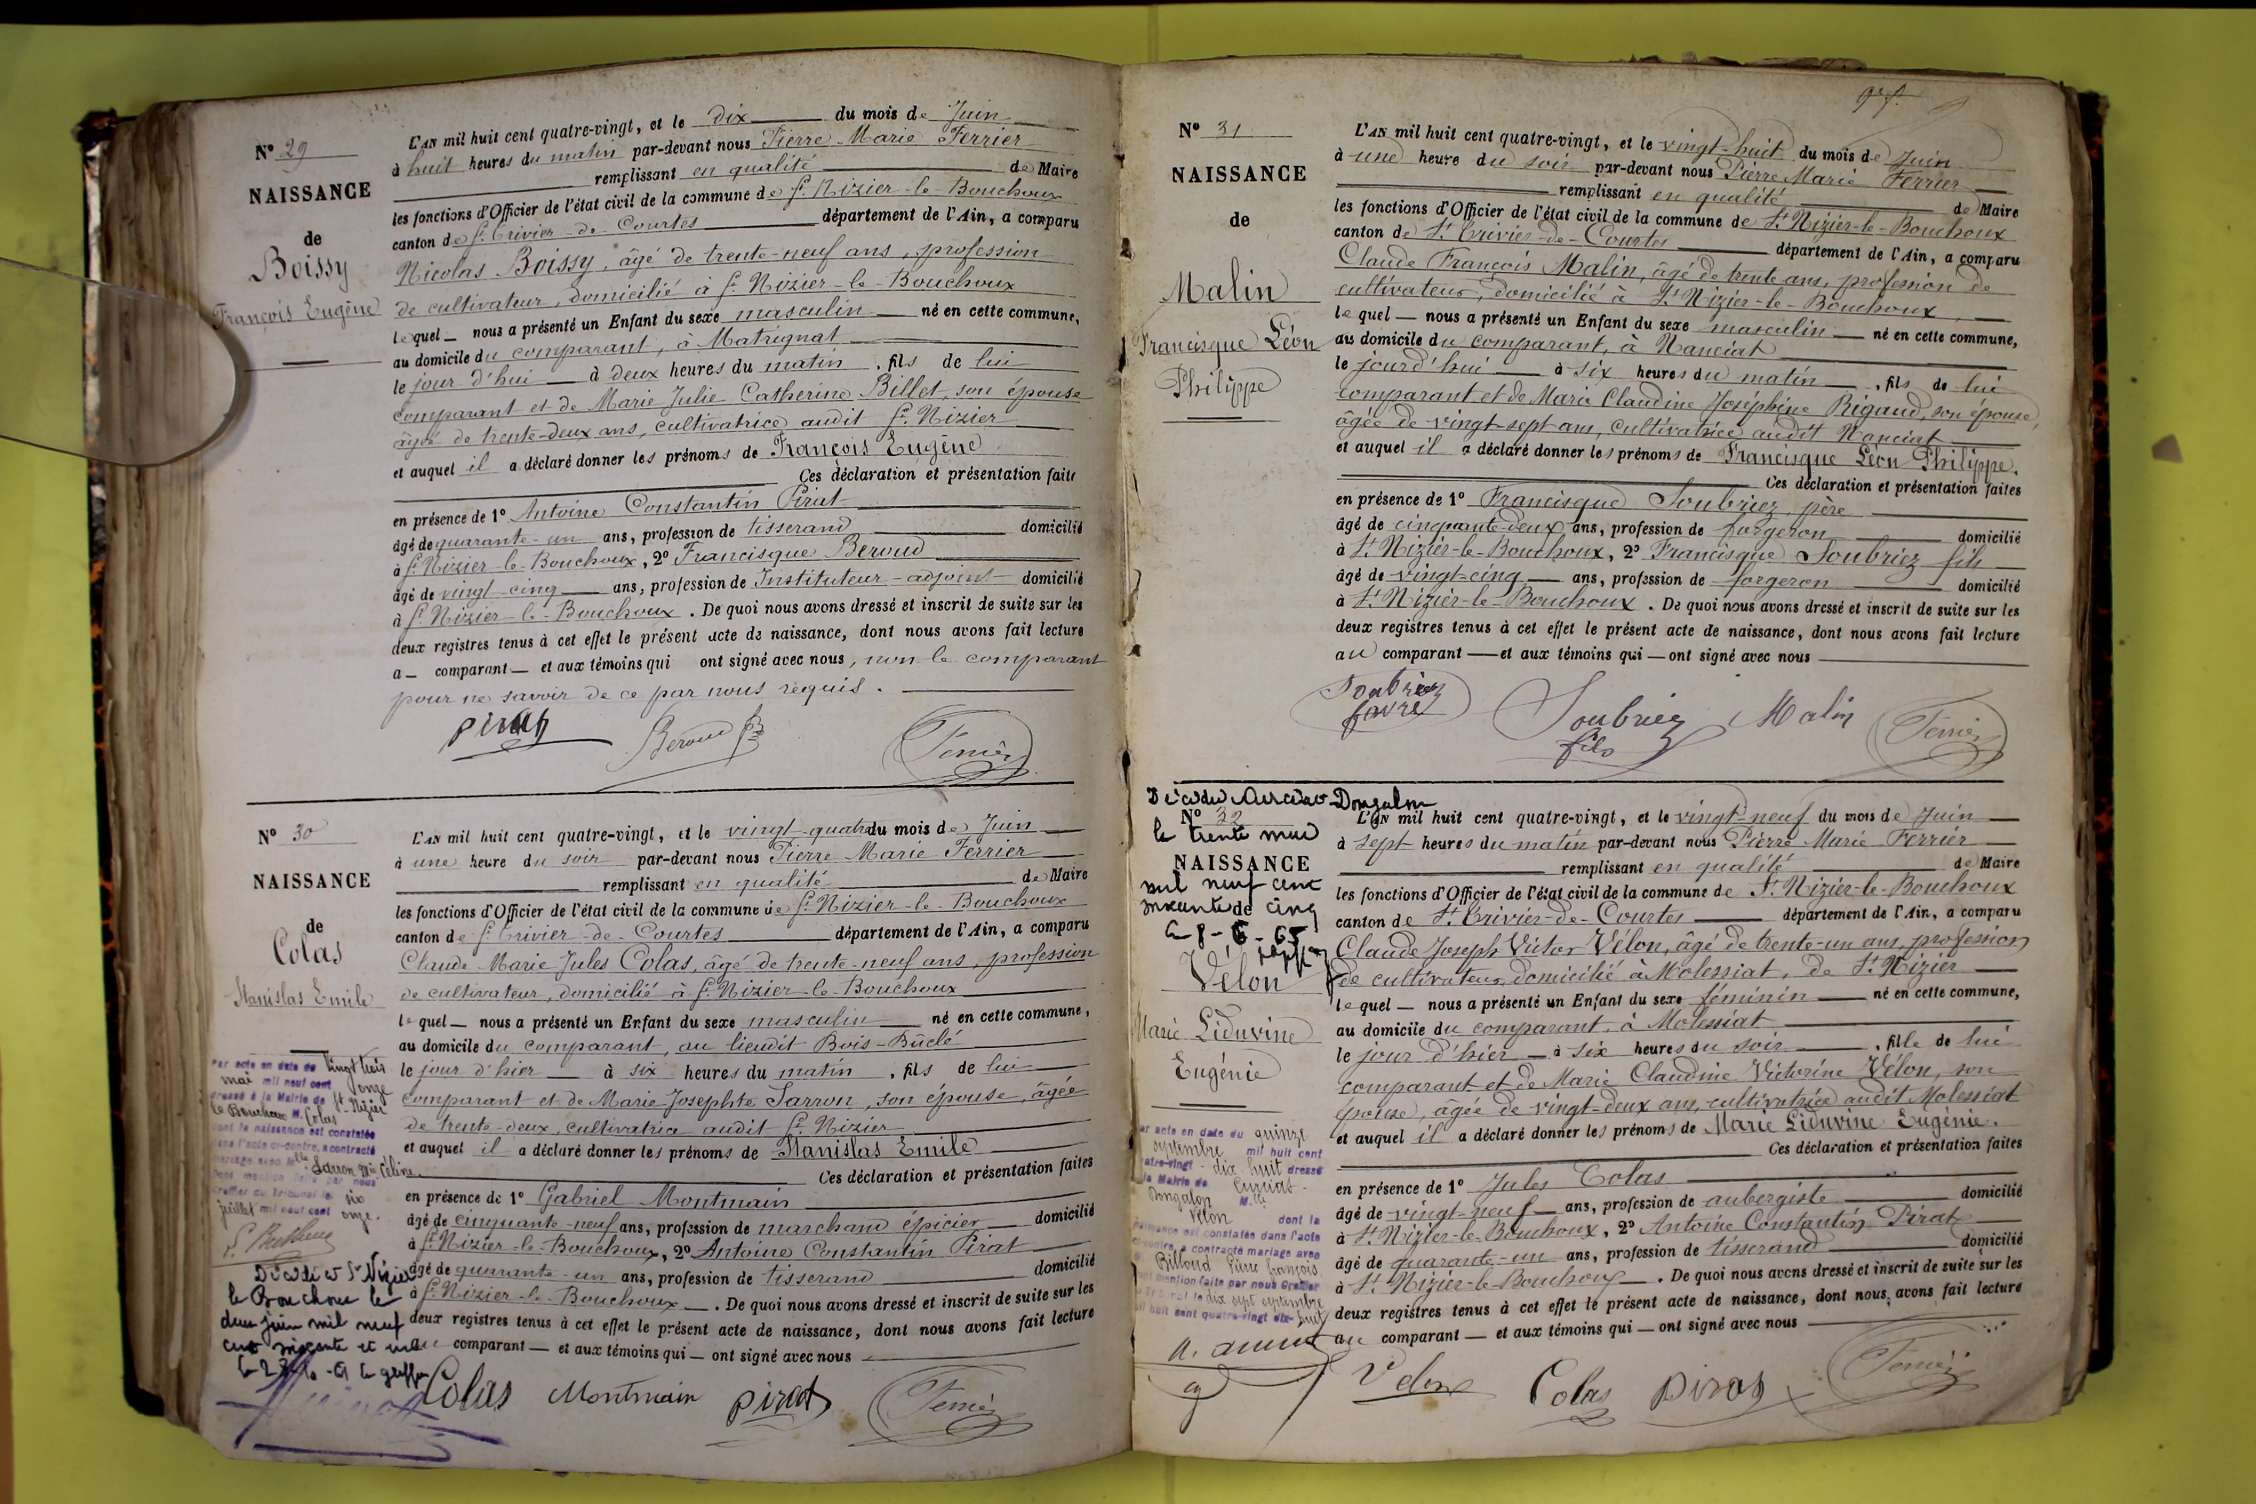 N° 29
NAISSANCE
de
Boissy
François Eugène
L'AN mil huit cent quatre-vingt, et le dix du mois de Juin
à huit heures du matin par-devant nous Pierre Marie Ferrier
remplissant en qualité de Maire
les fonctions d'Officier de l'état civil de la commune de St Nizier-le-Bouchoux
canton de St Trivier-de-Courtes département de l'Ain, a comparu
Nicolas Boissy, âgé de trente-neuf ans, profession
de cultivateur, domicilié à St Nizier-le-Bouchoux
lequel nous a présenté un Enfant du sexe masculin né en cette commune,
au domicile du comparant, à Matrignat
le jour d'hui à deux heures du matin, fils de lui
comparant et de Marie Julie Catherine Billet, son épouse
âgée de trente-deux ans, cultivatrice audit St Nizier
et auquel il a déclaré donner les prénoms de François Eugène
Ces déclaration et présentation faites
en présence de 1° Antoine Constantin Pirat
âgé de quarante-un ans, profession de tisserand domicilié
à St Nizier-le-Bouchoux, 2° Francisque Beroud
âgé de vingt-cinq ans, profession de Instituteur-adjoint domicilié
à St Nizier-le-Bouchoux. De quoi nous avons dressé et inscrit de suite sur les
deux registres tenus à cet effet le présent acte de naissance, dont nous avons fait lecture
a comparant et aux témoins qui ont signé avec nous, non le comparant
pour ne savoir de ce par nous requis.
Pirat Beroud Ferrier
N° 30
NAISSANCE
de
Colas
Stanislas Emile
L'AN mil huit cent quatre-vingt, et le vingt-quatre du mois de Juin
à une heure du soir par-devant nous Pierre Marie Ferrier
remplissant en qualité de Maire
les fonctions d'Officier de l'état civil de la commune de St Nizier-le-Bouchoux
canton de St Trivier-de-Courtes département de l'Ain, a comparu
Claude Marie Jules Colas, âgé de trente-neuf ans, profession
de cultivateur, domicilié à St Nizier-le-Bouchoux
lequel nous a présenté un Enfant du sexe masculin né en cette commune,
au domicile du comparant, au lieudit Bois-Buclé
le jour d'hier à six heures du matin, fils de lui
comparant et de Marie Josephte Sarron, son épouse, âgée
de trente-deux, cultivatrice audit St Nizier
et auquel il a déclaré donner les prénoms de Stanislas Emile
Ces déclaration et présentation faites
en présence de 1° Gabriel Montmain
âgé de cinquante-neuf ans, profession de marchand épicier domicilié
à St Nizier-le-Bouchoux, 2° Antoine Constantin Pirat
âgé de quarante-un ans, profession de tisserand domicilié
à St Nizier-le-Bouchoux. De quoi nous avons dressé et inscrit de suite sur les
deux registres tenus à cet effet le présent acte de naissance, dont nous avons fait lecture
au comparant et aux témoins qui ont signé avec nous
Colas Montmain Pirat Ferrier
Par acte en date du vingt trois
mai mil neuf cent onze
dressé à la Mairie de St Nizier
le Bouchoux M. Colas
dont la naissance est constatée
dans l'acte ci-contre, a contracté
mariage avec Mlle Sarron Mie Céline.
Dont mention faite par nous
Greffier du Tribunal le six
juillet mil neuf cent onze.
Décédé à St Nizier
le Bouchoux le
deux juin mil neuf
cent soixante et un
N° 31
NAISSANCE
de
Malin
Francisque Léon
Philippe
L'AN mil huit cent quatre-vingt, et le vingt-huit du mois de Juin
à une heure du soir par-devant nous Pierre Marie Ferrier
remplissant en qualité de Maire
les fonctions d'Officier de l'état civil de la commune de St Nizier-le-Bouchoux
canton de St Trivier-de-Courtes département de l'Ain, a comparu
Claude François Malin, âgé de trente ans, profession de
cultivateur, domicilié à St Nizier-le-Bouchoux,
lequel nous a présenté un Enfant du sexe masculin né en cette commune,
au domicile du comparant, à Nanciat
le jourd'hui à six heures du matin, fils de lui
comparant et de Marie Claudine Joséphine Rigaud, son épouse,
âgée de vingt-sept ans, cultivatrice audit Nanciat
et auquel il a déclaré donner les prénoms de Francisque Léon Philippe.
Ces déclaration et présentation faites
en présence de 1° Francisque Soubriez, père
âgé de cinquante-deux ans, profession de forgeron domicilié
à St Nizier-le-Bouchoux, 2° Francisque Soubriez fils
âgé de vingt-cinq ans, profession de forgeron domicilié
à St Nizier-le-Bouchoux. De quoi nous avons dressé et inscrit de suite sur les
deux registres tenus à cet effet le présent acte de naissance, dont nous avons fait lecture
au comparant et aux témoins qui ont signé avec nous
Soubriez Soubriez fils Malin Ferrier
N° 32
NAISSANCE
de
Vélon
Marie Liduvine
Eugénie
Dongalon
le trente mai
mil neuf cent
soixante cinq
L'AN mil huit cent quatre-vingt, et le vingt-neuf du mois de Juin
à sept heures du matin par-devant nous Pierre Marie Ferrier
remplissant en qualité de Maire
les fonctions d'Officier de l'état civil de la commune de St Nizier-le-Bouchoux
canton de St Trivier-de-Courtes département de l'Ain, a comparu
Claude Joseph Victor Vélon, âgé de trente-un ans, profession
de cultivateur, domicilié à Molessiat, de St Nizier
lequel nous a présenté un Enfant du sexe féminin né en cette commune,
au domicile du comparant, à Molessiat
le jour d'hier à six heures du soir, fille de lui
comparant et de Marie Claudine Victorine Vélon, son
épouse, âgée de vingt-deux ans, cultivatrice audit Molessiat
et auquel il a déclaré donner les prénoms de Marie Liduvine Eugénie.
Ces déclaration et présentation faites
en présence de 1° Jules Colas
âgé de vingt-neuf ans, profession de aubergiste domicilié
à St Nizier-le-Bouchoux, 2° Antoine Constantin Pirat
âgé de quarante-un ans, profession de tisserand domicilié
à St Nizier-le-Bouchoux. De quoi nous avons dressé et inscrit de suite sur les
deux registres tenus à cet effet le présent acte de naissance, dont nous avons fait lecture
au comparant et aux témoins qui ont signé avec nous
Velon Colas Pirat Ferrier
Par acte en date du quinze
septembre mil huit cent
quatre-vingt-dix huit dressé
à la Mairie de Curciat-
Dongalon Mlle
Vélon dont la
naissance est constatée dans l'acte
ci-contre, a contracté mariage avec
Billoud Pierre François.
Dont mention faite par nous Greffier
du Tribunal le dix sept septembre
mil huit cent quatre-vingt dix-huit